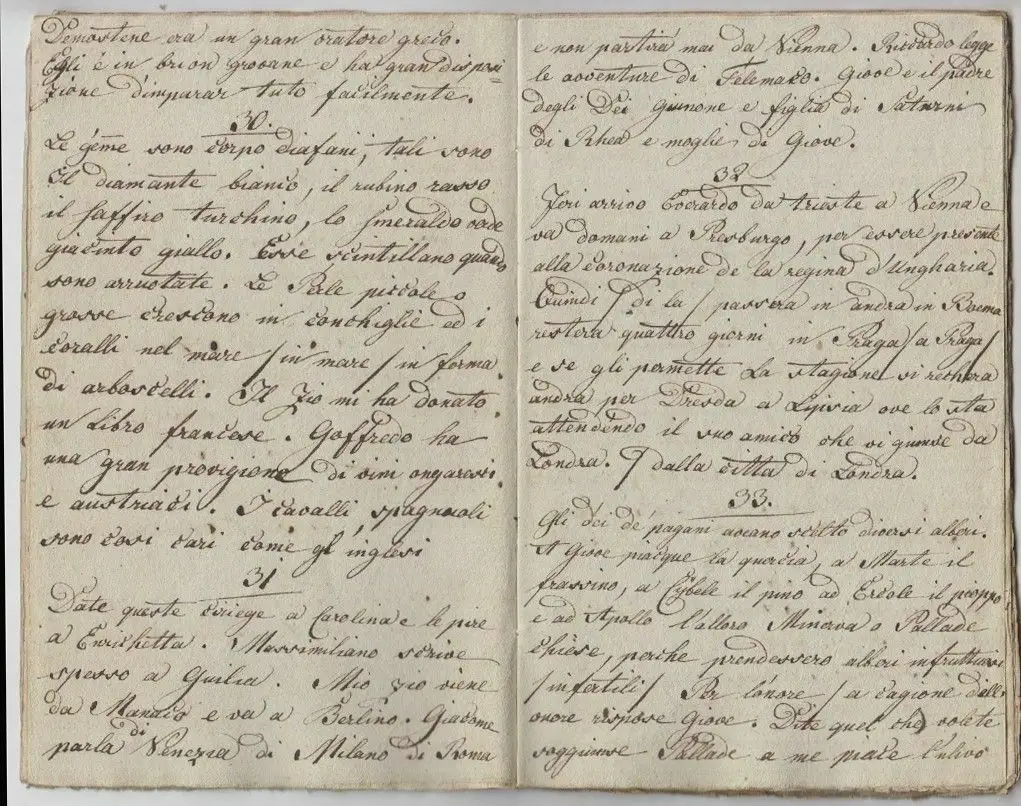 Demostene era un gran oratore greco.
Egli é in brion giovane e ha gran disposi=
zione d'imparar tuto facilmente.
30.
Le géme sono corpo diafani, tali sono
Il diamante bianco, il rubino rasso
il saffiro turchino, lo smeraldo verde
giacinto giallo. Esse scintillano quando
sono arruotate. Le Perle piccole o
grosse crescono in conchiglie ed i
coralli nel mare / in mare / in forma
di arboscelli. Il Zio mi ha donato
un Libro francese. Goffredo ha
una gran provigione di vini ongaresi
e austriaci. I cavalli spagnuoli
sono cosi cari come gl'inglesi
31
Date queste ciriege a Carolina e le pere
a Enrichetta. Massimiliano scrive
spesso a Guilia. Mio zio viene
da Manaco e va a Berlino. Giacome
parla di Venezia di Milano di Roma
e non partirá mai da Vienna. Riccardo legge
le avventure di Telemaco. Giove e il padre
degli Dei Giunone e figlia di Saturni
di Rhea e moglie di Giove.
32
Jeri arrivo Everardo da trieste a Vienna e
va domani a Presburgo, per essere presente
alla coronazione de la regina d'Ungharia.
Quindi / di la / passera in andra in Boema
restera quattro giorni in Praga / a Praga /
e se gli permette la stagione si rechera
andra per Dresda a Lipsia ove lo sta
attendendo il suo amico che vi giunse da
Londra. / dalla citta di Londra.
33.
Gli dei de' pagani avcano scelto diversi alberi.
A Giove piacque la quercia, a Marte il
frassino, a Cybele il pino ad Ercole il pioppo
e ad Apollo l'alloro Minerva o Pallade
chiese, perche prendessero alberi infruttuosi
/ infertili / Per l'onore / a cagione dell'
onore rispose Giove. Dite quel che volete
soggiunse Pallade a me piace l'ulivo